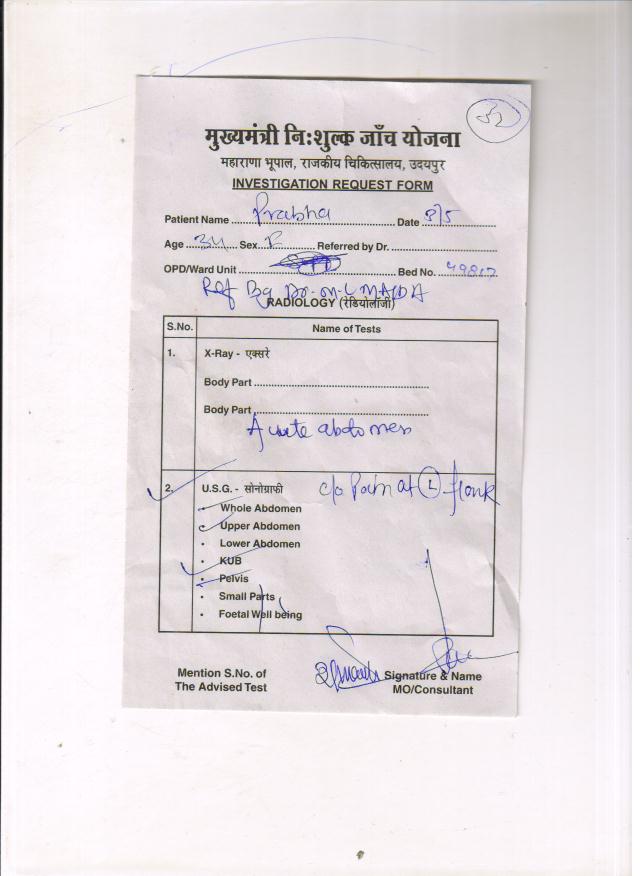 32
मुख्यमंत्री निःशुल्क जाँच योजना
महाराणा भूपाल, राजकीय चिकित्सालय, उदयपुर
INVESTIGATION REQUEST FORM
Patient Name Prabha Date 8/5
Age 34 Sex F Referred by Dr.
OPD/Ward Unit Bed No. 49812
Ref By Dr. M-L
RADIOLOGY (रेडियोलॉजी)
S.No. Name of Tests
1. X-Ray - एक्सरे
Body Part
Body Part
Acute abdomen
2. U.S.G. - सोनोग्राफी c/o Pain at L flank
• Whole Abdomen
• Upper Abdomen
• Lower Abdomen
• KUB
• Pelvis
• Small Parts
• Foetal Well being
Mention S.No. of Signature & Name
The Advised Test MO/Consultant